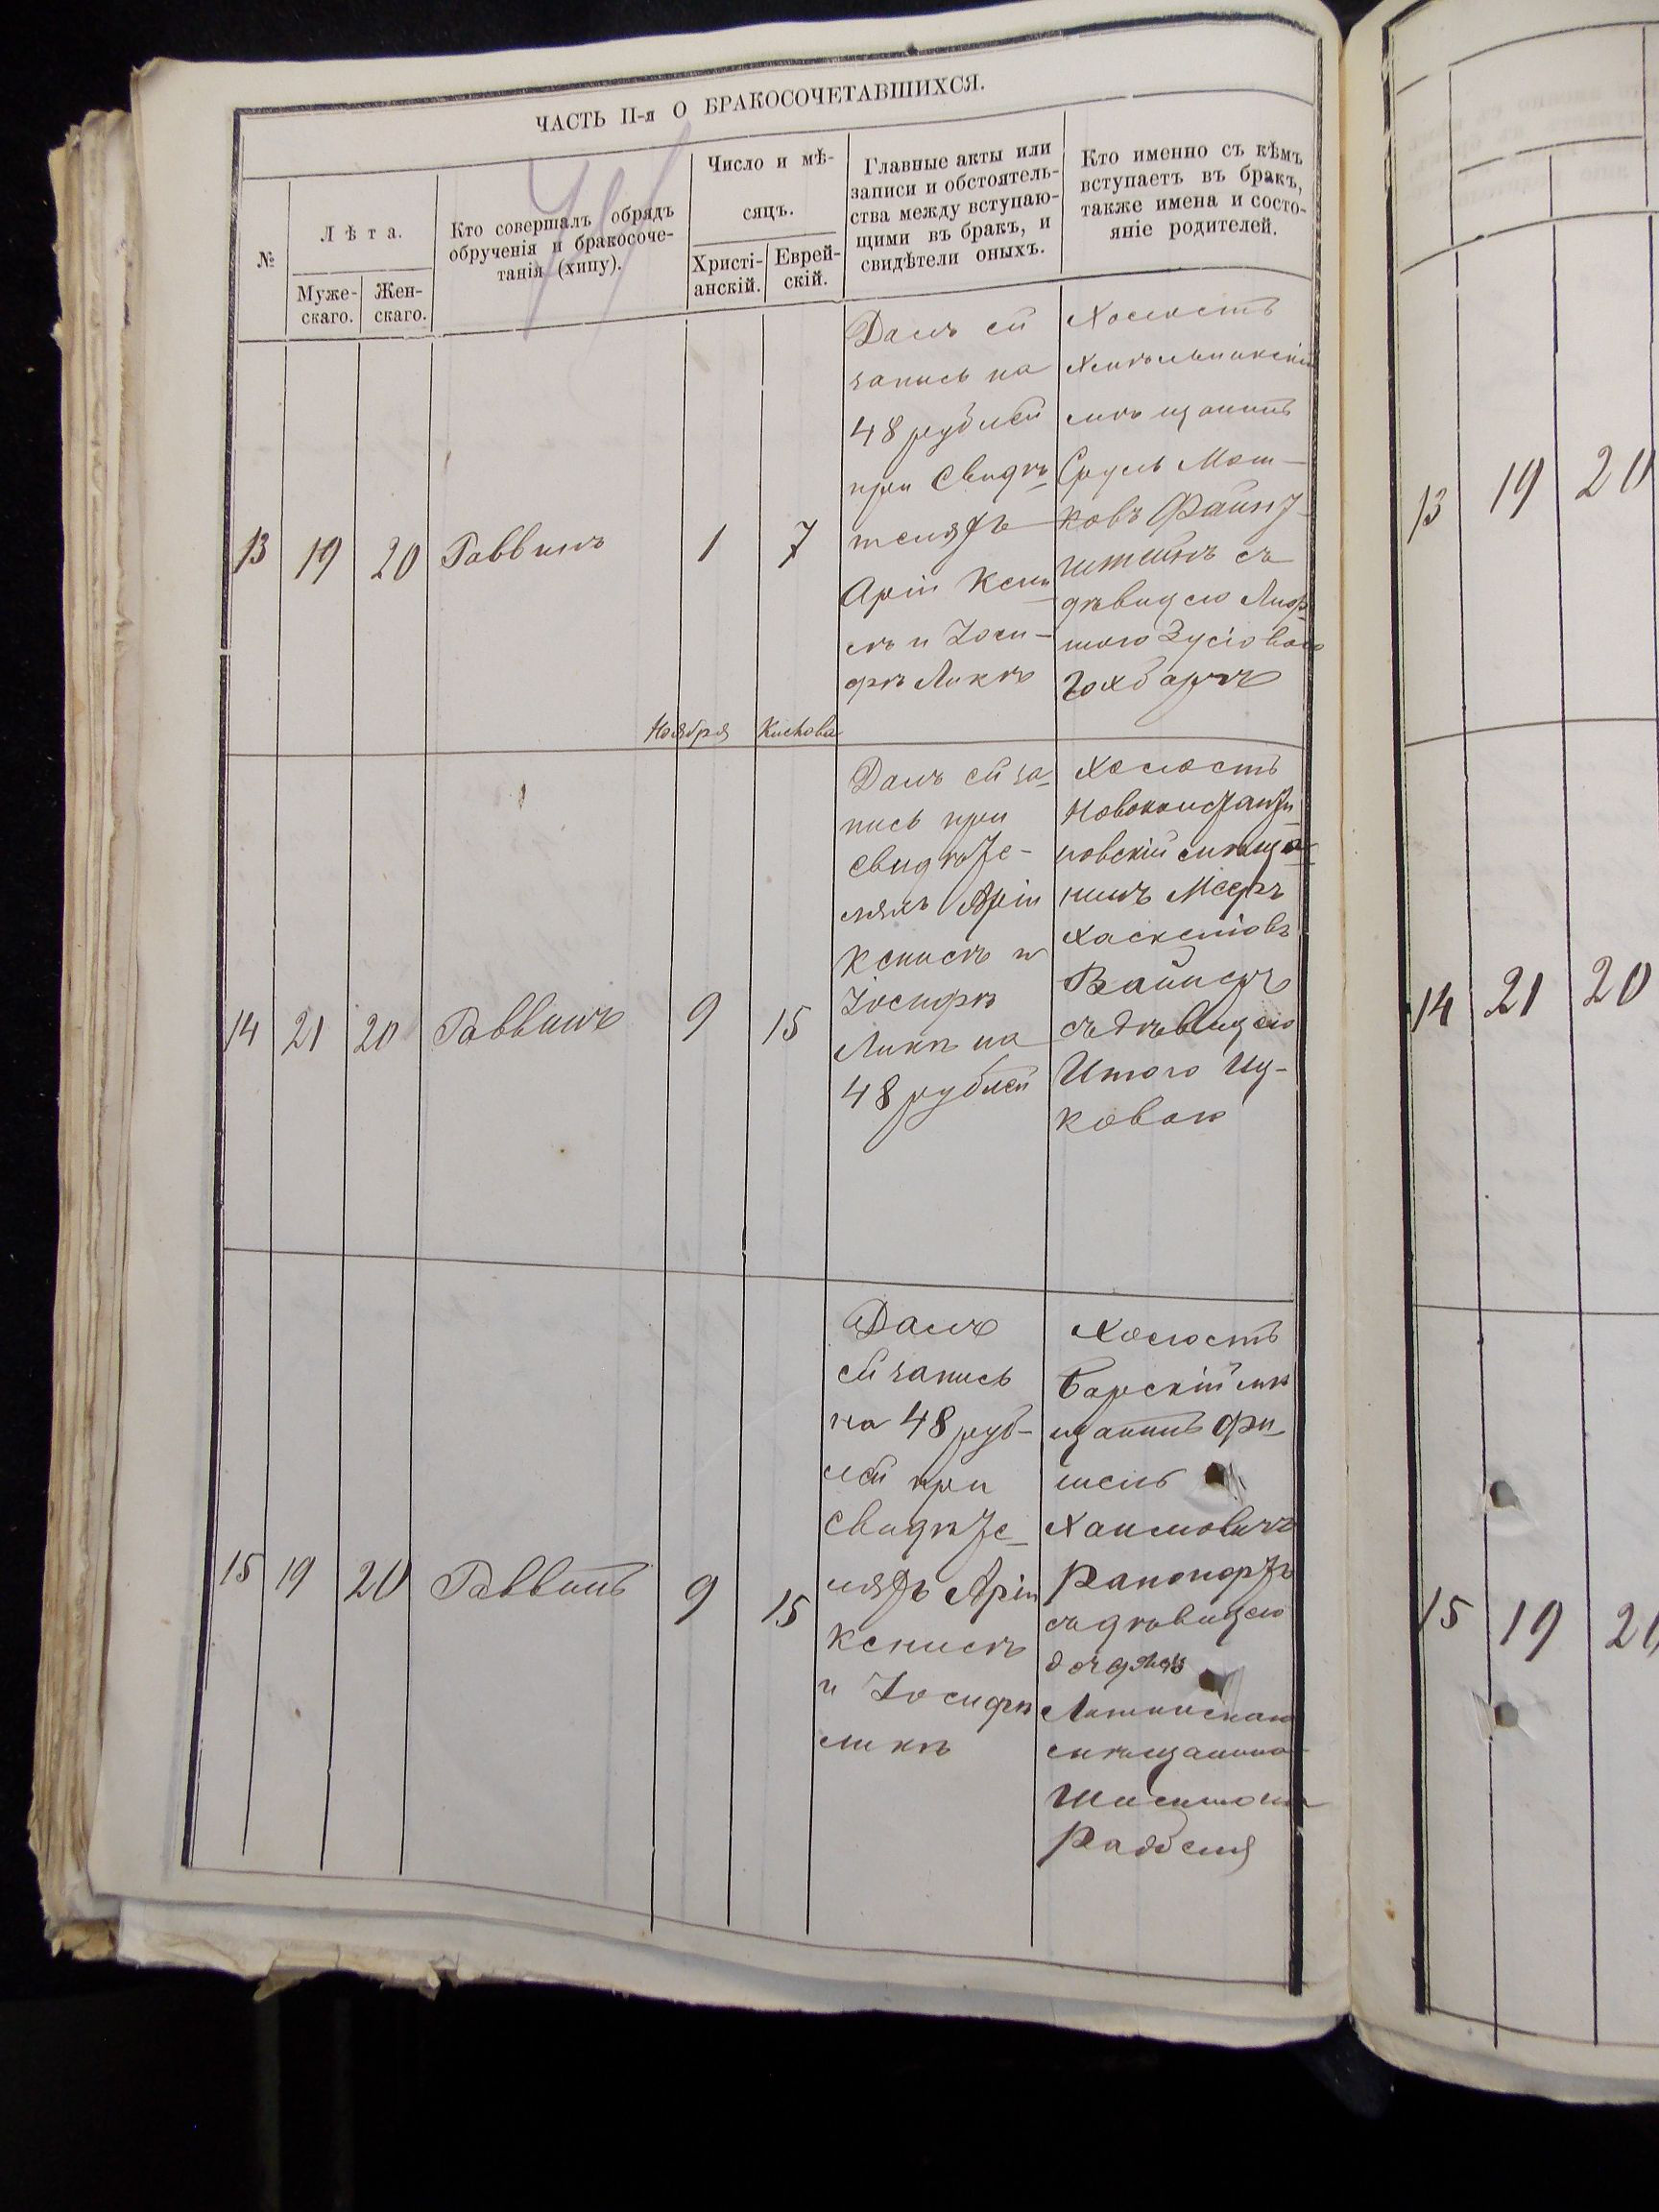 ЧАСТЬ II-я О БРАКОСОЧЕТАВШИХСЯ.
№
Лѣта.
Муже-
скаго.
Жен-
скаго.
Кто совершалъ обрядъ
обрученія и бракосоче-
танія (хипу).
Число и мѣ-
сяцъ.
Христі-
анскій.
Еврей-
скій.
Главные акты или
записи и обстоятель-
ства между вступаю-
щими въ бракъ, и
свидѣтели оныхъ.
Кто именно съ кѣмъ
вступаетъ въ бракъ,
также имена и состо-
яніе родителей.
13
19
20
Раввинъ
1
7
Далъ ей
запись на
48 рублей
при Свидѣ-
теляхъ
Арій Кени
съ и Іоси-
фъ Ликъ
Холостъ
Хмѣльникскій
мѣщанинъ
Сруль Мош-
ковъ Файн
штейнъ съ
дѣвицею
Зусіовою
Гохбаргъ
Ноября
Кислова
14
21
20
Раввинъ
9
15
Далъ ей за-
пись при
свидѣте-
ляхъ Арій
Кенисъ и
Іосифъ
Ликъ на
48 рублей
Холостъ
Новоконстанти
новскій мѣща-
нинъ Мееръ
Хаскелiовъ
Вайнеръ
съ дѣвицею
Итою Иц-
ковою
15
19
20
Раввинъ
9
15
Далъ
ей запись
на 48 руб-
лей при
Свидѣте-
ляхъ Арій
Кенисъ
и Іосифъ
Ликъ
Холостъ
Барскій мѣ
щанинъ Фи-
шель
Хаимовичъ
Рапопортъ
съ дѣвицею
мѣщанина
13
19
20
14
21
20
15
19